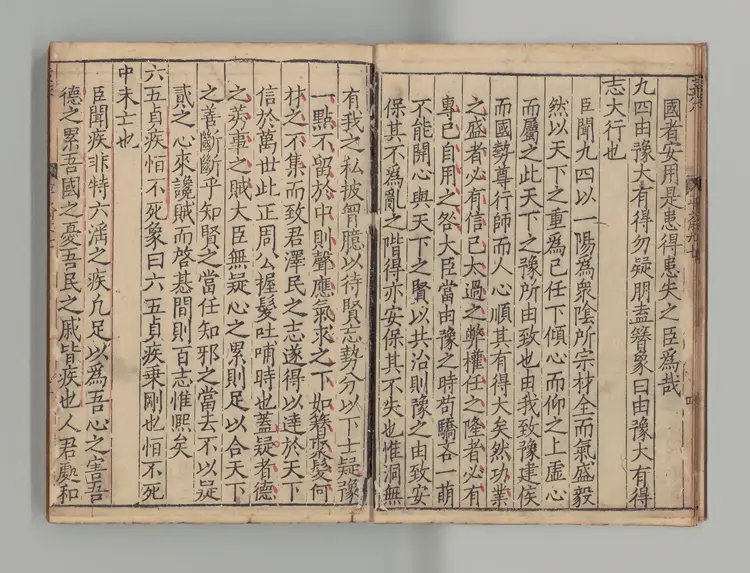 國者安用是患得患失之臣爲哉
九四由豫大有得勿疑朋盍簪象曰由豫大有得
志大行也
臣聞九四以一陽爲衆陰所宗材全而氣盛毅
然以天下之重爲己任下傾心而仰之上虛心
而屬之此天下之豫所由致也由我致豫建侯
而國勢尊行師而人心順其有得大矣然功業
之盛者必有信己太過之弊權任之隆者必有
專己自用之咎大臣當由豫之時苟驕吝一萌
不能開心與天下之賢以共治則豫之由致安
保其不爲亂之階得亦安保其不失也惟洞無
有我之私披胷臆以待賢忘勢分以下士疑豫
一點不留於中則聲應氣求之下如簪聚髮何
材之不集而致君澤民之志遂得以達於天下
信於萬世此正周公握髮吐哺時也蓋疑者德
之莠事之賊大臣無疑心之累則足以合天下
之善斷斷乎知賢之當任知邪之當去不以疑
貳之心來讒賊而啓基間則百志惟熈矣
六五貞疾恒不死象曰六五貞疾乗剛也恒不死
中未亡也
臣聞疾非特六淫之疾凢足以爲吾心之害吾
德之累吾國之憂吾民之戚皆疾也人君處和